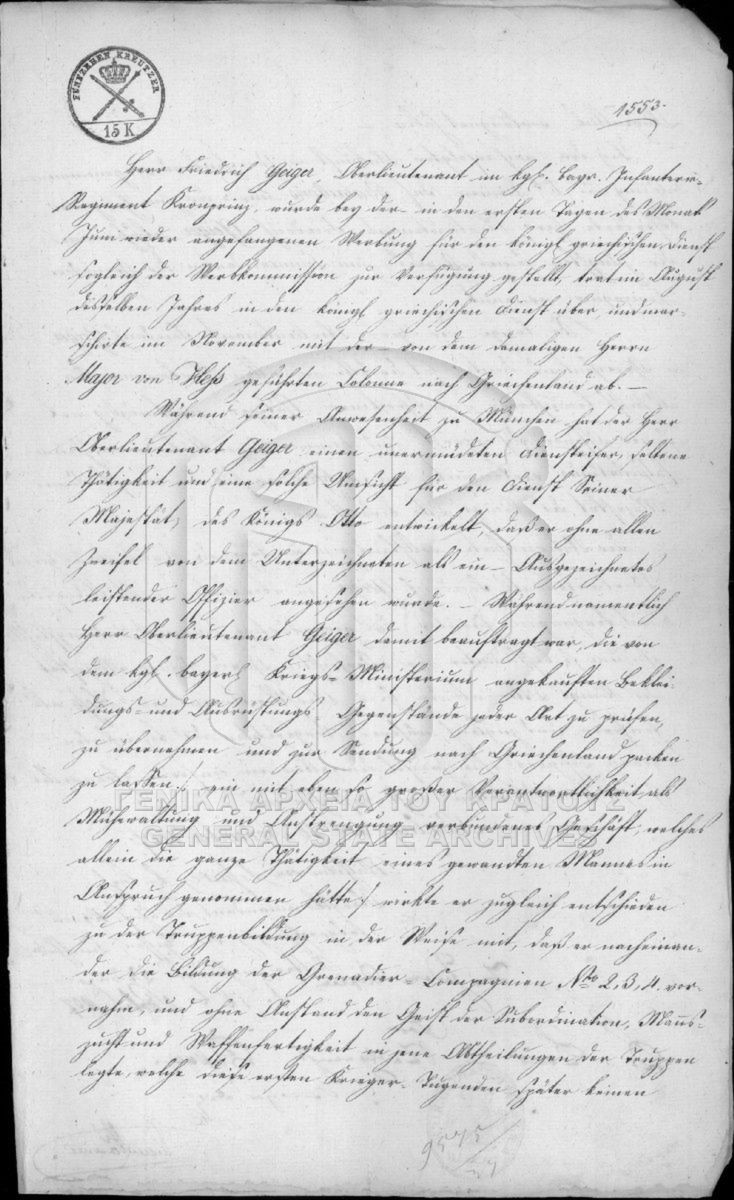 FÜNFZEHEN KREUTZER
15 K
1553.
Herr Friedrich Geiger, Oberlieutenant im Kgl. bayr. Infanterie-
Regiment Kronprinz, wurde bey der in den ersten Tagen des Monats
Juni wieder angefangenen Werbung für den königl. griechischen Dienst
sogleich der Werbkommission zur Verfügung gestellt, trat im August
desselben Jahres in den königl. griechischen Dienst über und mar-
schirte im November mit der von dem damaligen Herrn
Major von Heß geführten Colonne nach Griechenland ab. —
Während seiner Anwesenheit zu München hat der Herr
Oberlieutenant Geiger einen unermüdeten Diensteifer, seltene
Thätigkeit und eine solche Umsicht für den Dienst Seiner
Majestät, des Königs Otto entwickelt, daß er ohne allen
Zweifel von dem Unterzeichneten als ein Ausgezeichnetes
leistender Offizier angesehen wurde. — Während namentlich
Herr Oberlieutenant Geiger damit beauftragt war, die von
dem kgl. bayer. Kriegs-Ministerium angekauften Beklei-
dungs- und Ausrüstungs Gegenstände jeder Art zu prüfen,
zu übernehmen und zur Sendung nach Griechenland packen
zu lassen /: ein mit eben so großer Verantwortlichkeit, als
Mühewaltung und Anstrengung verbundenes Geschäft, welches
allein die ganze Thätigkeit eines gewandten Mannes in
Anspruch genommen hätte :/ wirkte er zugleich entschieden
zu der Truppenbildung in der Weise mit, daß er nacheinan-
der die Bildung der Grenadier-Compagnien No 2, 3, 4. vor-
nahm, und ohne Anstand den Geist der Subordination, Manns-
zucht und Waffenfertigkeit in jene Abtheilungen der Truppen
legte, welche diese ersten Krieger-Tugenden später keinen
9575
ΓΕΝΙΚΑ ΑΡΧΕΙΑ ΤΟΥ ΚΡΑΤΟΥΣ
GENERAL STATE ARCHIVES